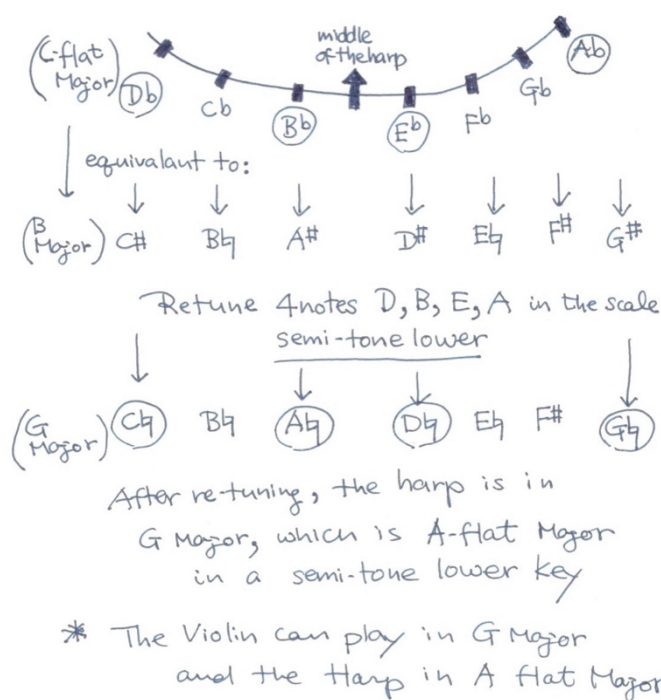 middle
of the harp
(C-flat
Major)
Db Cb Bb Eb Fb Gb Ab
equivalant to:
(B
Major) C# B♮ A# D# E♮ F# G#
Retune 4 notes D, B, E, A in the scale
semi-tone lower
(G
Major) C♮ B♮ A♮ D♮ E♮ F# G♮
After re-tuning, the harp is in
G Major, which is A-flat Major
in a semi-tone lower key
* The Violin can play in G Major
and the Harp in A flat Major